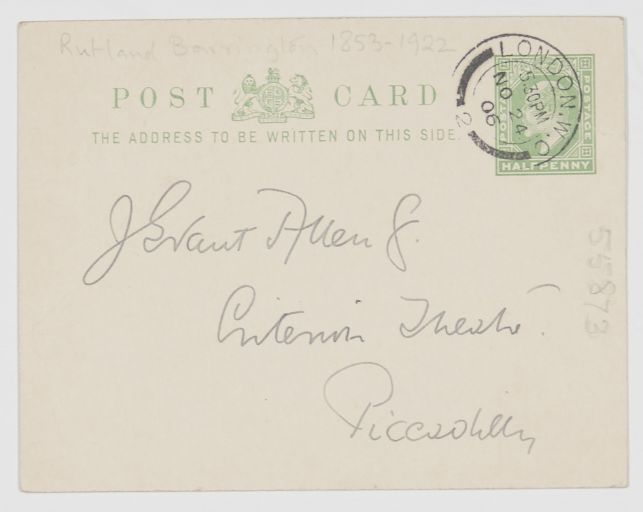 Rutland Barrington 1853-1922
POST CARD
THE ADDRESS TO BE WRITTEN ON THIS SIDE.
LONDON.W.C
5.30PM
NO 24
06
2
POSTAGE
HALFPENNY
J Grant Allen
Criterion Theatre.
Piccadilly
55873